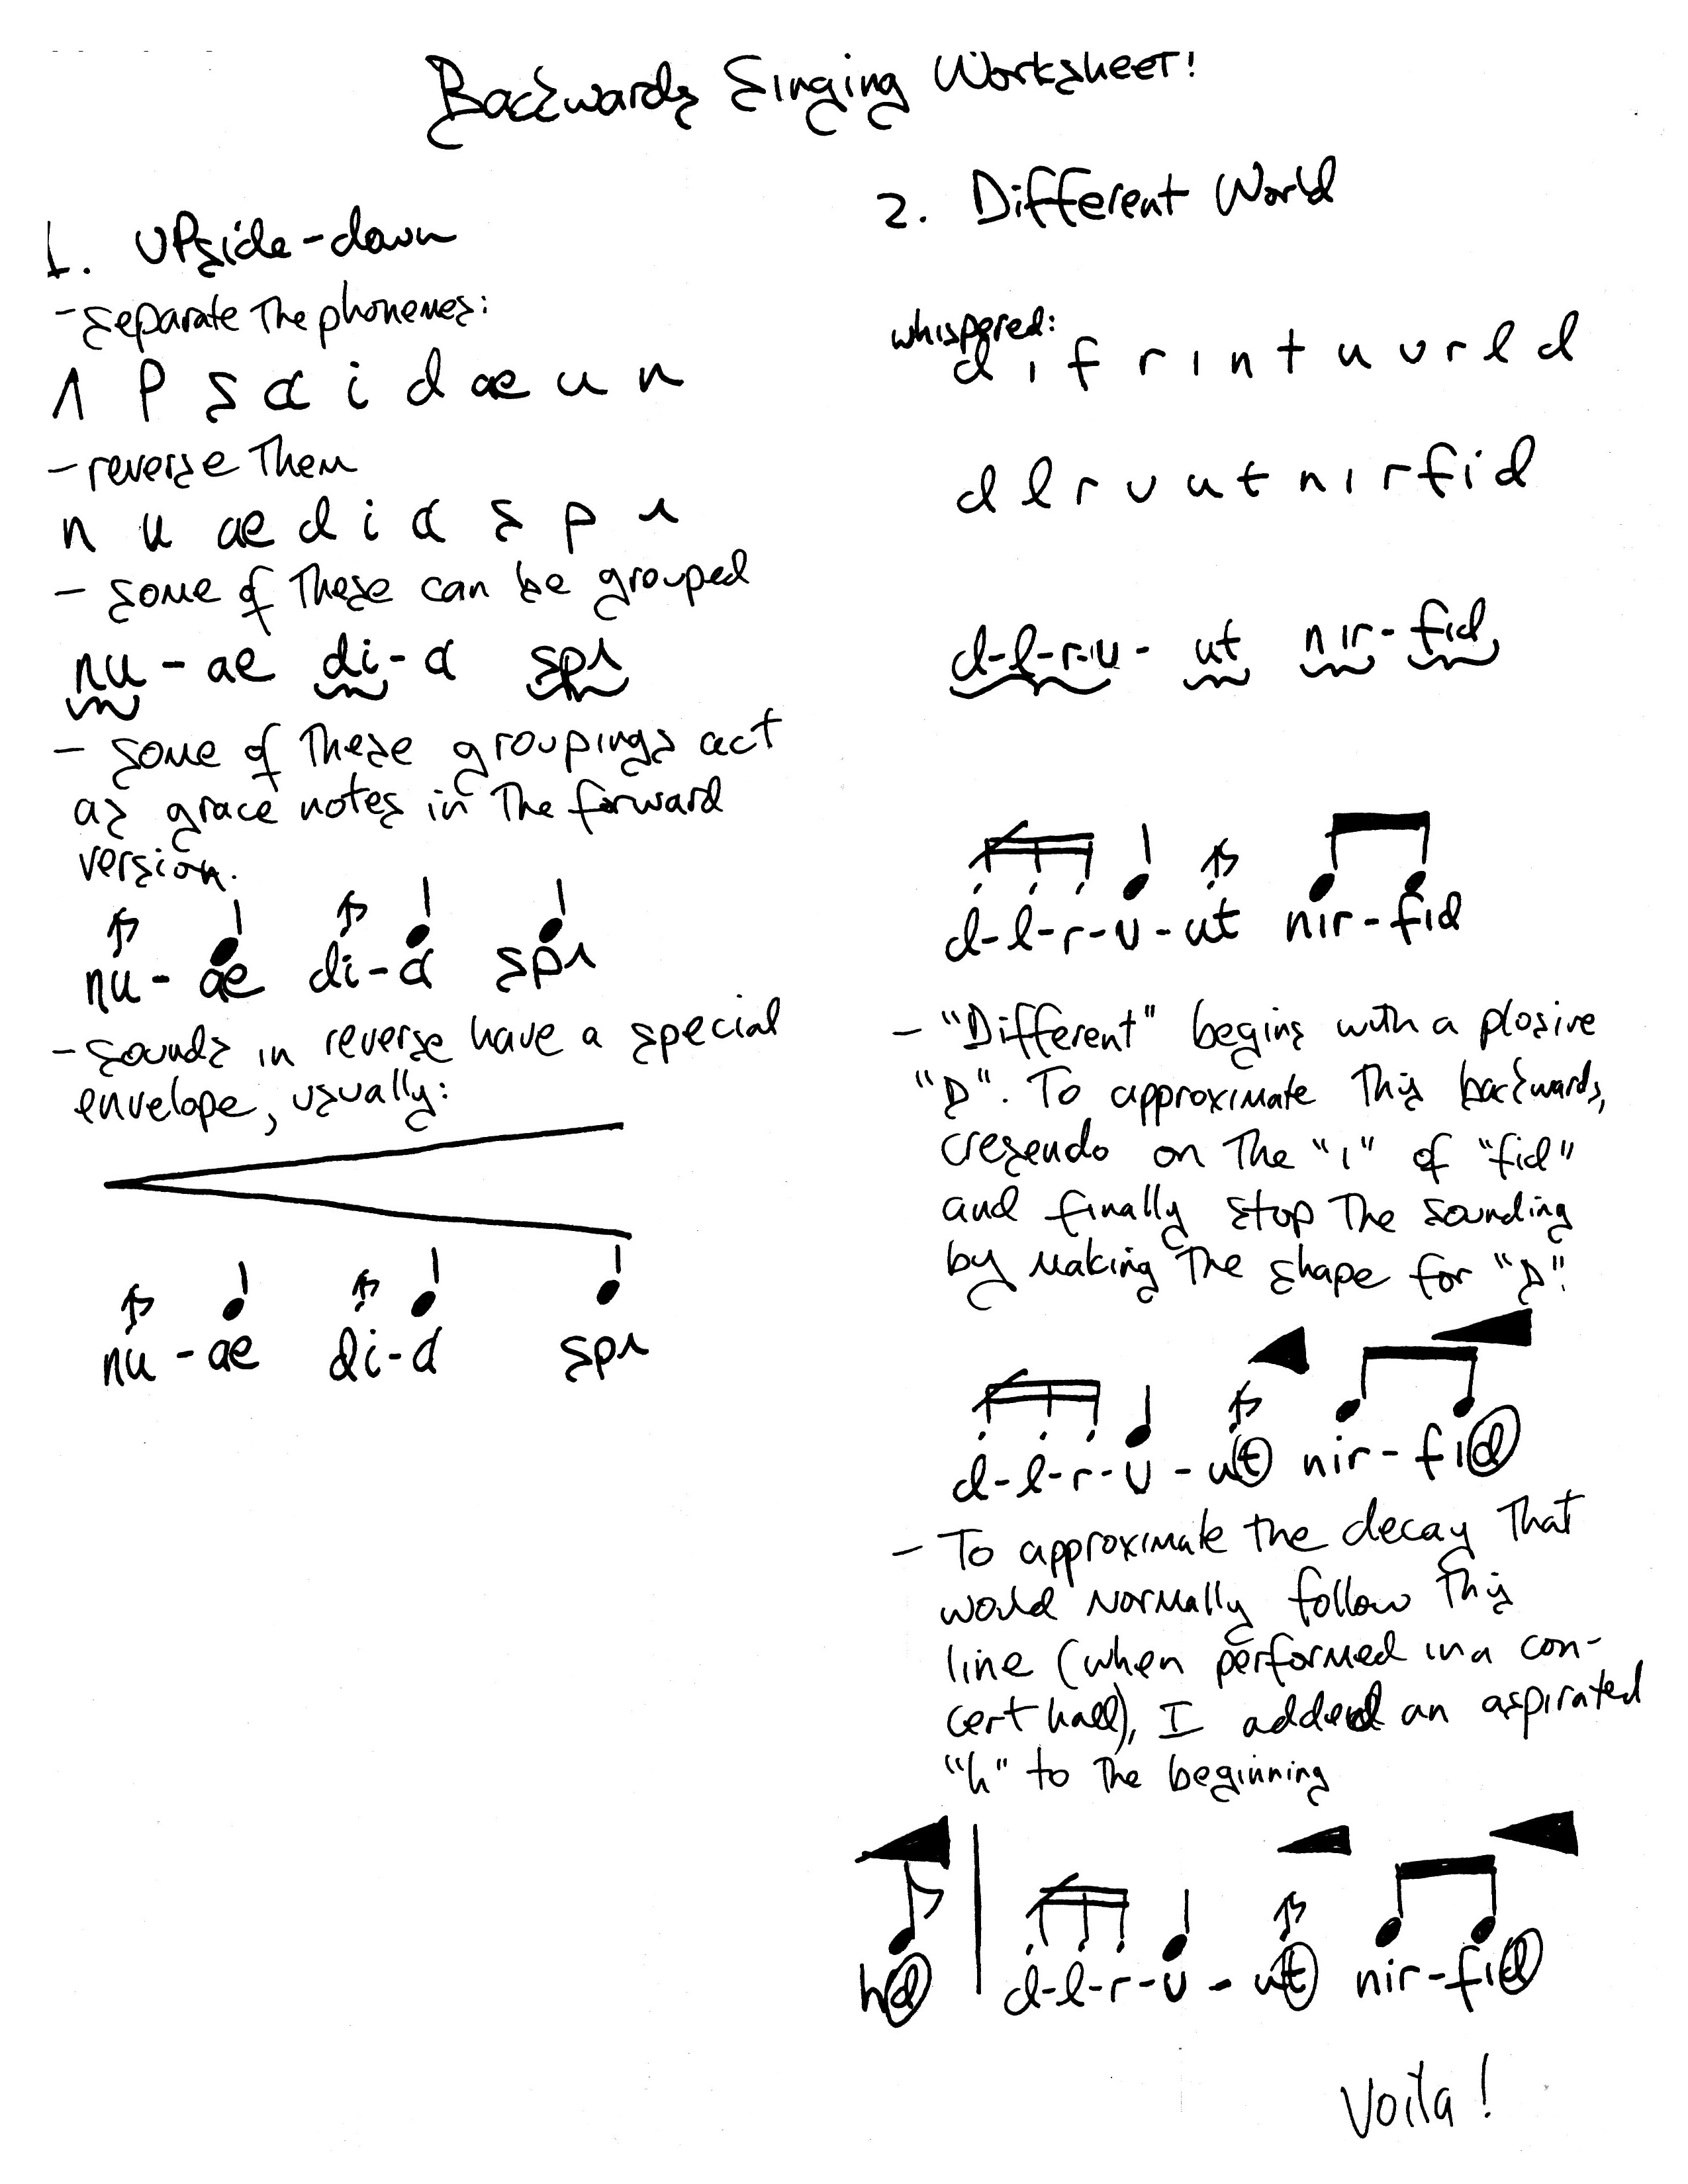 Backwards Singing Worksheet!
1. Upside-down
- separate the phonemes:
ʌ p s ɑ i d æ u n
- reverse them
n u æ d i ɑ s p ʌ
- some of these can be grouped
nu - æ di - ɑ spʌ
- some of these groupings act
as grace notes in the forward
version.
nu - æ di - ɑ spʌ
- sounds in reverse have a special
envelope, usually:
nu - æ di - ɑ spʌ
2. Different World
whispered:
d ı f r ı n t u ʊ r l d
d l r ʊ u t n ı r f i d
d-l-r-ʊ- ut nır - fid
d-l-r-ʊ-ut nır-fıd
- "Different" begins with a plosive
"D". To approximate this backwards,
cresendo on the "ı" of "fid"
and finally stop the sounding
by making the shape for "D".
d-l-r-ʊ-ut nir-fıd
- To approximate the decay that
would normally follow this
line (when performed in a con-
cert hall), I added an aspirated
"h" to the beginning
hd d-l-r-ʊ-ut nir-fid
Voila!